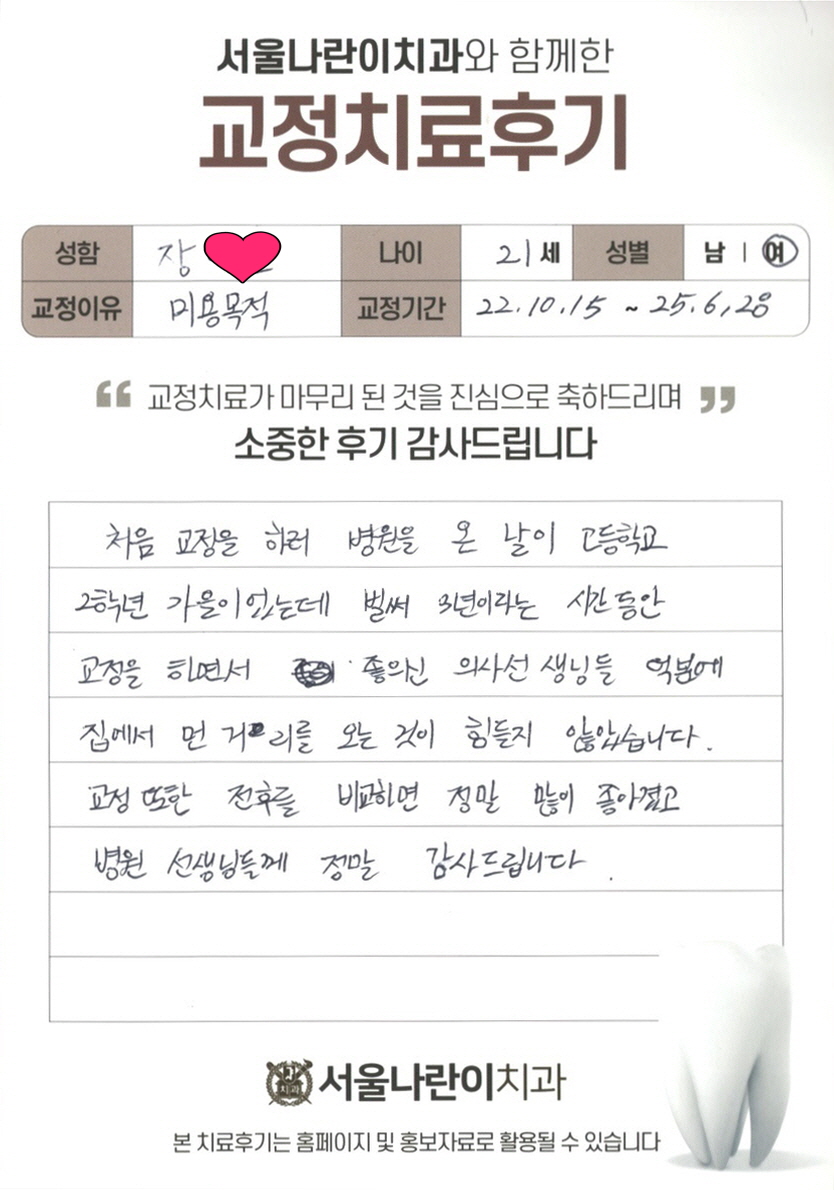 서울나란이치과와 함께한
교정치료후기
성함 장 나이 21 세 성별 남 | 여
교정이유 미용목적 교정기간 22.10.15 ~ 25.6.28
“ 교정치료가 마무리 된 것을 진심으로 축하드리며 ”
소중한 후기 감사드립니다
처음 교정을 하러 병원을 온 날이 고등학교
2학년 가을이었는데 벌써 3년이라는 시간동안
교정을 하면서 좋으신 의사선생님들 덕분에
집에서 먼 거리를 오는 것이 힘들지 않았습니다.
교정 또한 전후를 비교하면 정말 많이 좋아졌고
병원 선생님들께 정말 감사드립니다.
치과
서울나란이치과
본 치료후기는 홈페이지 및 홍보자료로 활용될 수 있습니다